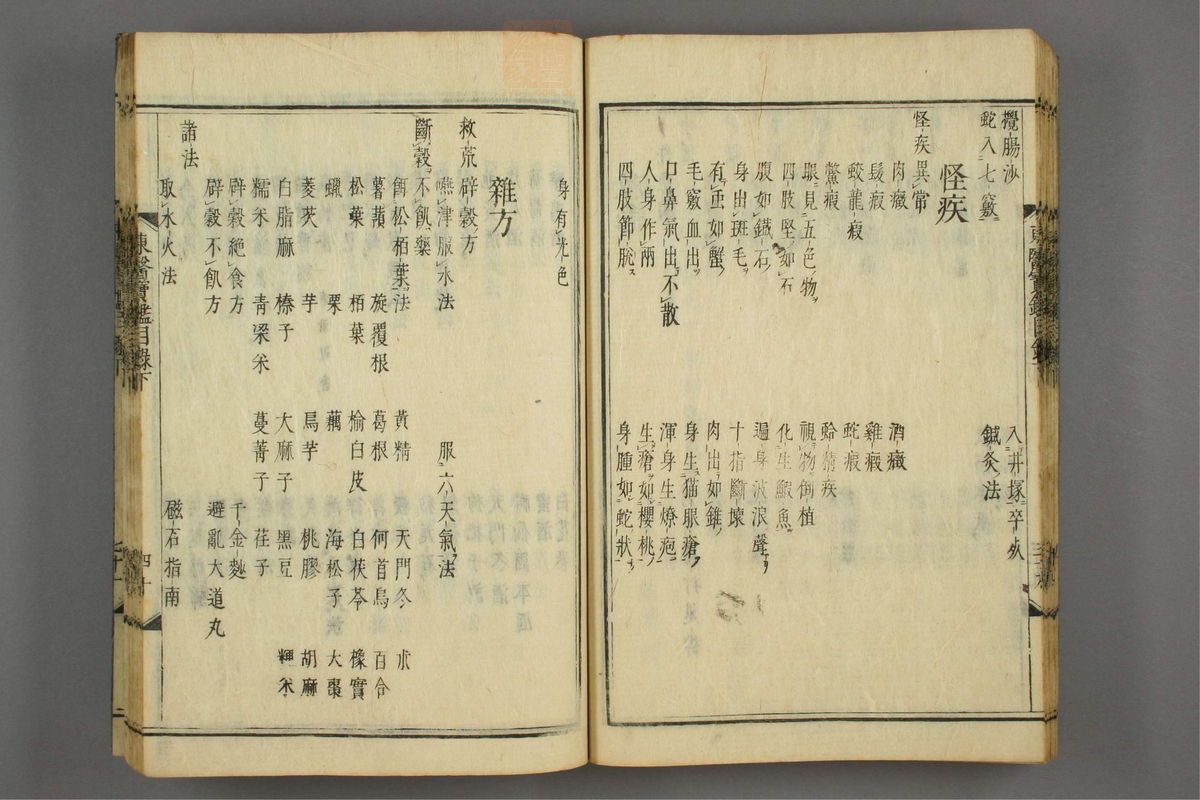 攪腸沙
入井塚卒死
蛇入七竅
鍼灸法
怪疾
怪疾異常
肉癥
酒癥
髮瘕
雞瘕
蛟龍瘕
蛇瘕
鱉瘕
眼見五色物
視物倒植
四肢堅如石
化生鰕魚
腹如鐵石
遍身波浪聲
身出斑毛
十指斷壞
有虫如蟹
肉出如錐
毛竅血出
身生猫眼瘡
口鼻氣出不散
渾身生燎疱
人身作兩
生瘡如櫻桃
四肢節脫
身腫如蛇狀
身有光色
雜方
救荒辟穀方
嚥津服水法
服六天氣法
斷穀不飢藥
餌松栢葉法
黃精
天門冬
朮
薯蕷
旋覆根
葛根
何首烏
百合
松葉
栢葉
榆白皮
白茯苓
橡實
蠟
栗
藕
海松子
大棗
菱芡
芋
烏芋
桃膠
胡麻
白脂麻
榛子
大麻子
黑豆
糯米
靑梁米
蔓菁子
荏子
辟穀絶食方
千金麨
辟穀不飢方
避亂大道丸
諸法
取水火法
磁石指南
東醫寶鑑目錄下
四十